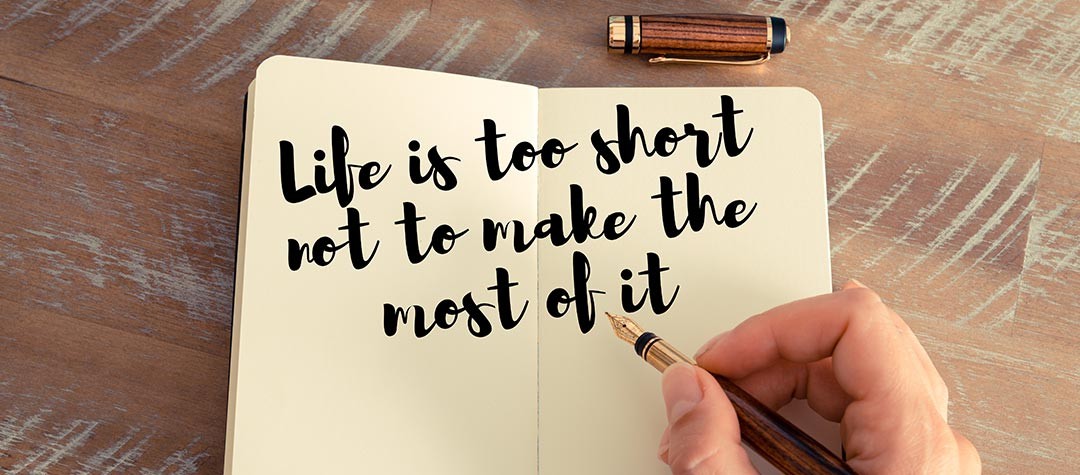 Life is too short
not to make the
most of it